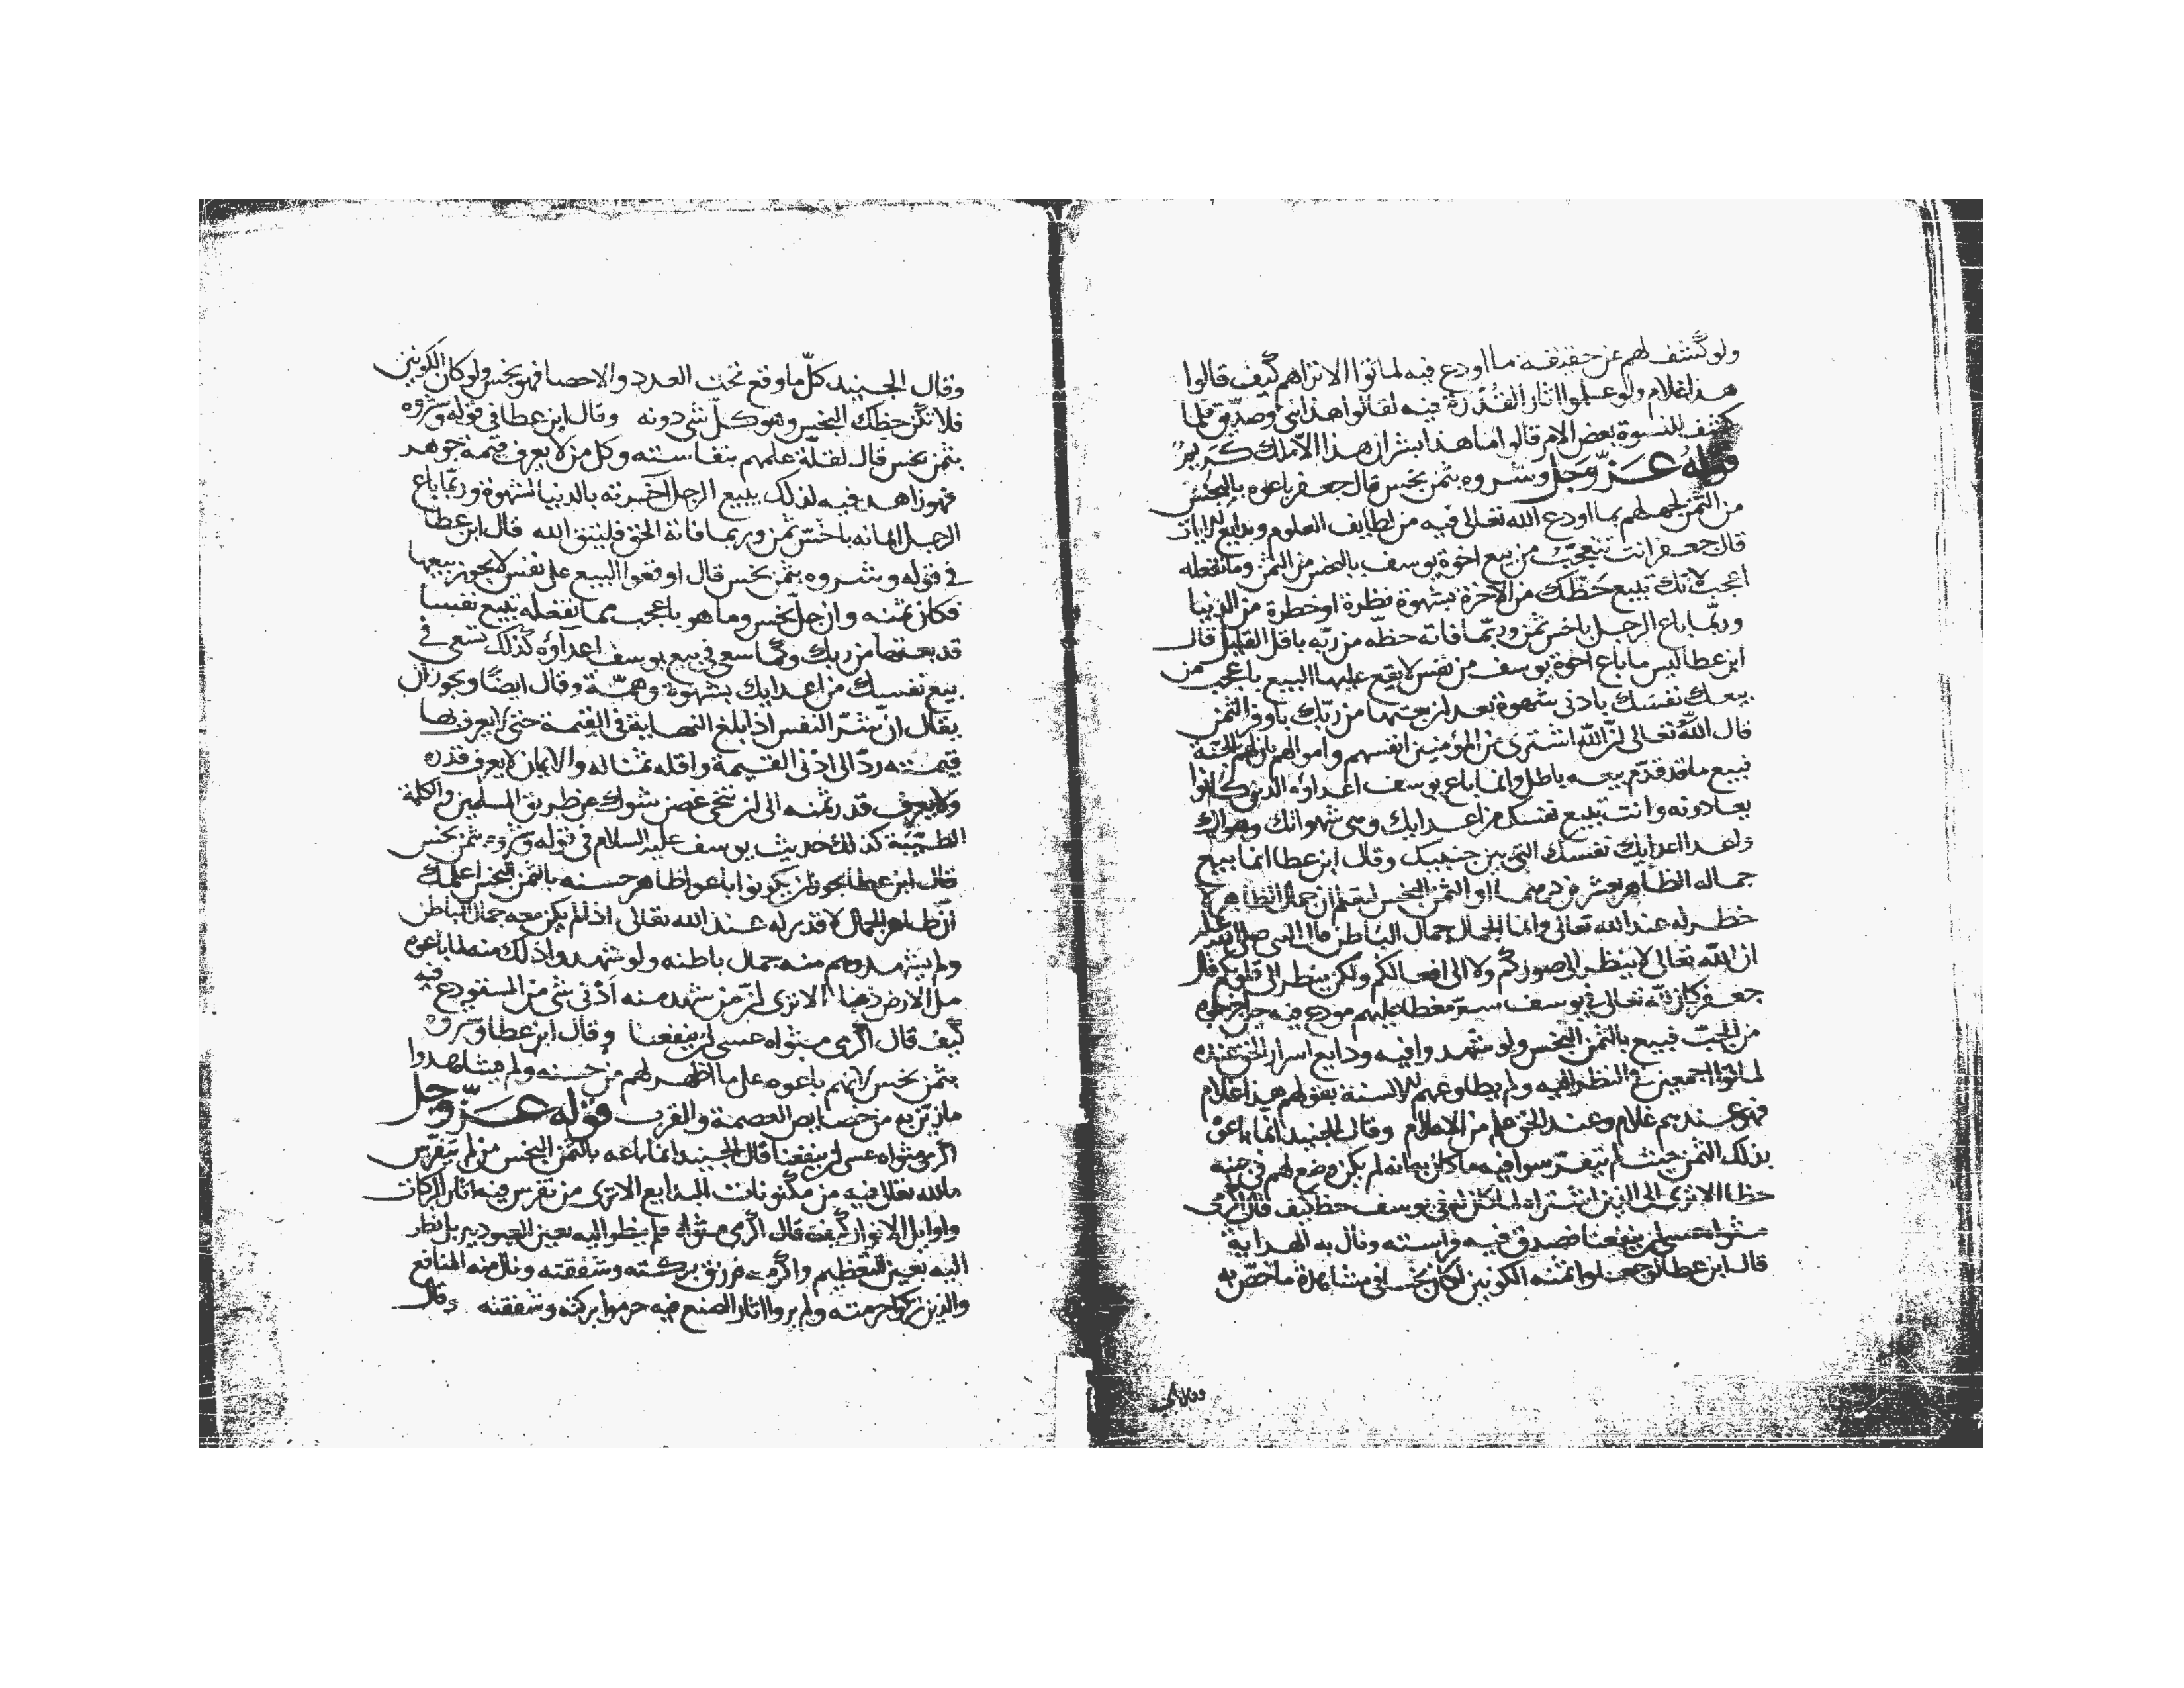 ولو كشف لهم عن حقيقة ما اودع فيه لماتوا الا تراهم كيف قالوا
هذا غلام ولو علموا اثار القدرة فيه لقالوا هذا نبى وصديق فلما
كشف للنسوة بعض الامر قالوا ما هذا بشرا ان هذا الا ملك كريم
قوله عز وجل وشروه بثمن بخس قال جعفر باعوه بالبخس
من الثمن لجهلهم بما اودع الله تعالى فيه من لطايف العلوم وبدايع الايات
قال جعفر انت تتعجب من بيع اخوة يوسف بالبخس من الثمن وما تفعله
اعجب لانك تبيع حظك من الاخرة بشهوة نظرة او خطرة من الدنيا
وربما باع الرجل باخس ثمن وربما فاته حظه من ربه باقل القليل قال
ابن عطا ليس ما باع اخوة يوسف من نفس لا يقع عليها البيع باعجب من
بيعك نفسك بادنى شهوة بعد ان بعتها من ربك باوفر الثمن
قال الله تعالى ان الله اشترى من المؤمنين انفسهم واموالهم بان لهم الجنة
فبيع ما قد قدم بيعه باطل وانما باع يوسف اعداؤه الذين كانوا
يعادونه وانت تبيع نفسك من اعدايك وهى شهواتك وهواك
واعدا اعدايك نفسك التى بين جنبيك وقال ابن عطا انما بيع
جماله الظاهر بعشرين درهما او الثمن البخس ليعلم ان جمال الظاهر لا
خطر له عند الله تعالى وانما الجمال جمال الباطن قال النبى صلى الله عليه
ان الله تعالى لا ينظر الى صوركم ولا الى افعالكم ولكن ينظر الى قلوبكم قال
جعفر كان لله تعالى فى يوسف سر مغطا عليهم مودع فيه حين اخرجوه
من الجب فبيع بالثمن البخس ولو شهدوا فيه ودايع اسرار الحق عنده
لماتوا اجمعين فى النظر اليه ولم يطاوعهم الالسنة بقولهم هذا غلام
فهو عندهم غلام وعند الحق علم من الاعلام وقال الجنيد انما باعوه
بذلك الثمن حيث لم يتفرسوا فيه ما كان بهانه لم يكن وضع لهم فى حبه
حظا الا ترى الى الذين اشتراه لما كان له فى يوسف حظ كيف قال اكرمى
مثواه عسى ان ينفعنا فصدق فيه فراسته ونال به الهداية
قال ابن عطا لو جعلوا ثمنه الكونين لكان بخسا فى مشاهدة ما خص به
وقال الجنيد
وقال الجنيد كل ما وقع تحت العدد والاحصا فهو بخس ولو كان الكونين
فلا تكن حظك البخس وهو كل شى دونه وقال ابن عطا فى قوله وشروه
بثمن بخس قال لقلة علمهم بنفاسته وكل من لا يعرف قيمة جوهر
فهو زاهد فيه لذلك يبيع الرجل اخرته بالدنيا لشهوة وربما باع
الرجل ايمانه باخس ثمن وربما فاته الحق فليتق الله قال ابن عطا
فى قوله وشروه بثمن بخس قال اوقعوا البيع على نفس لا يجوز بيعها
فكان ثمنه وان جل بخس وما هو باعجب مما تفعله تبيع نفسا
قد بعتها من ربك وكما سعى فى بيع يوسف اعداؤه كذلك تسعى فى
بيع نفسك من اعدايك بشهوة وهمة وقال ايضا ويجوز ان
يقال ان شر النفس اذا بلغ النهاية فى القيمة حتى لا يعرف بها
قيمته رد الى ادنى القيمة واقله مثاله والايمان لا يعرف قدره
ولا يعرف قدر ثمنه الى ان تنحى غصن شوك عن طريق المسلمين والكلمة
الطيبة كذلك حديث يوسف عليه السلام فى قوله وشروه بثمن بخس
قال ابن عطا يجوز ان يكونوا باعوا ظاهر حسنه بالثمن البخس اعلمك
ان ظاهر الجمال لا قدر له عند الله تعالى اذا لم يكن معه جمال الباطن
ولم يشهدوهم منه جمال باطنه ولو شهدوا ذلك منه لما باعوه
مل الارض ذهبا الا ترى ان من شهد منه ادنى شى من المستودع فيه
كيف قال اكرمى مثواه عسى ان ينفعنا وقال ابن عطا وشروه
بثمن بخس لانهم باعوه على ما اظهر لهم من حسنه ولم يشاهدوا
ما زين به من خصايص العصمة والقرب قوله عز وجل
اكرمى مثواه عسى ان ينفعنا قال الجنيد انما باعه بالثمن البخس من لم يتفرس
ما لله تعالى فيه من مكنونات البدايع الا ترى من تفرس فيه اثار البركات
واوايل الانوار كيف قال اكرمى مثواه فلم ينظر اليه بعين العبودية بل نظر
اليه بعين التعظيم واكرمه فرزق بركته وشفقته ونال منه المنافع
والذين تركوا حرمته ولم يروا اثار الصنع فيه حرموا بركته وشفقته وقال